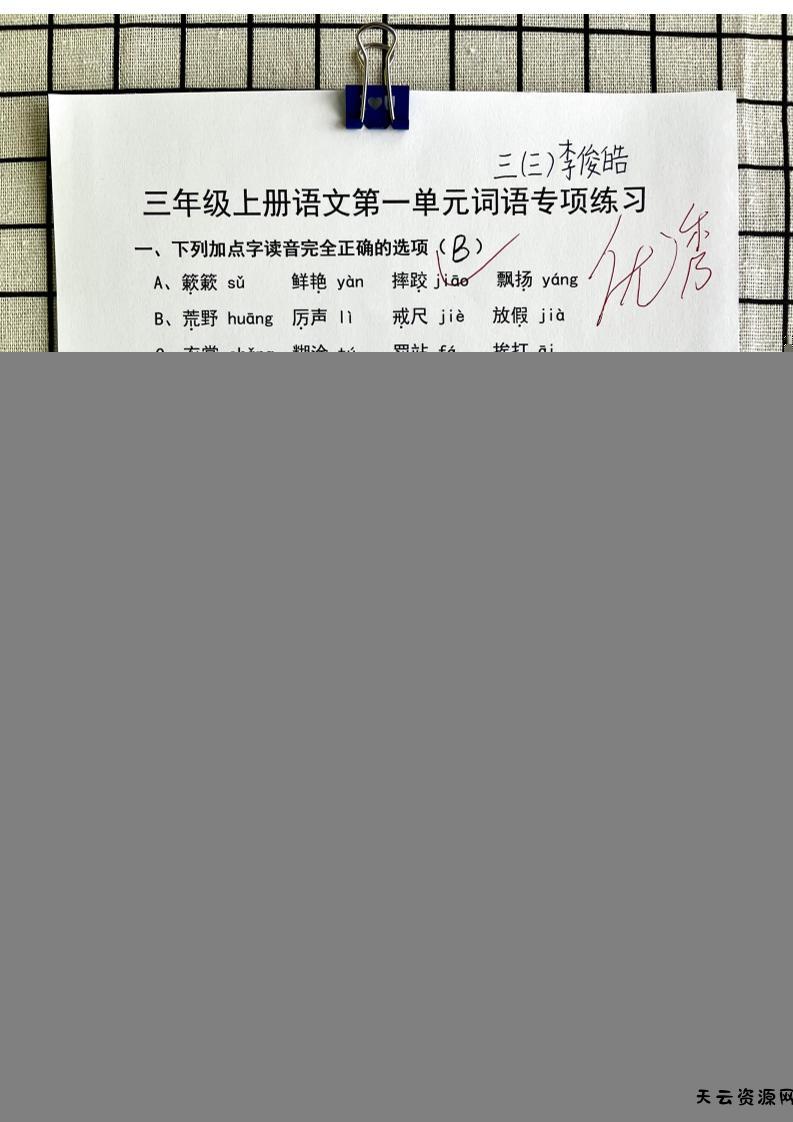 三(三)李俊皓
三年级上册语文第一单元词语专项练习
优秀
一、下列加点字读音完全正确的选项（B）
A、簌簌 sǔ 鲜艳 yàn 摔跤 jiāo 飘扬 yáng
B、荒野 huāng 厉声 lì 戒尺 jiè 放假 jià
天云资源网